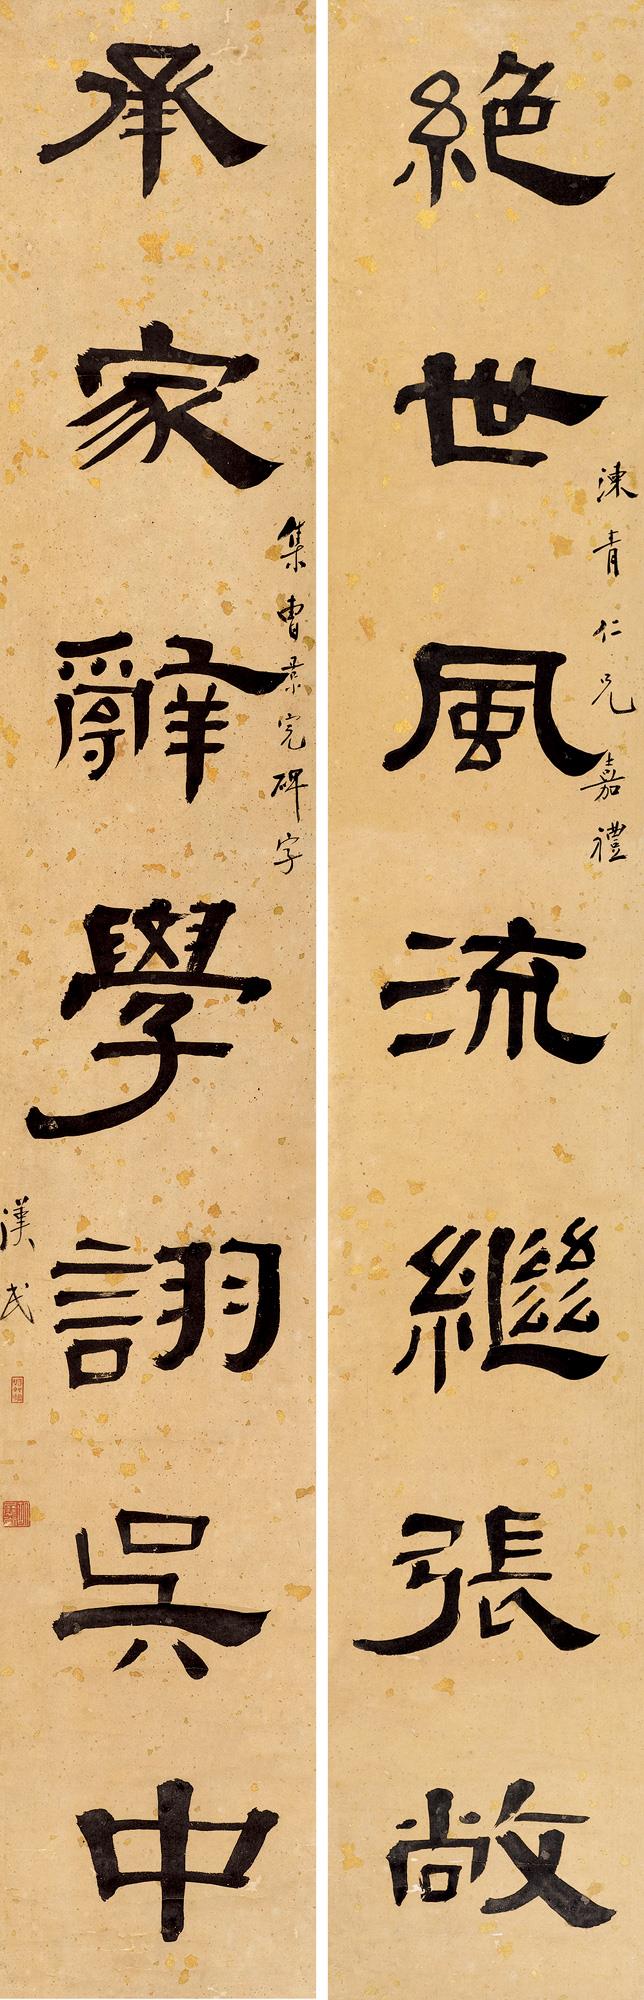 絕世風流繼張敞
湅青仁兄嘉禮
承家辭學詡吳中
集曹景完碑字
漢民